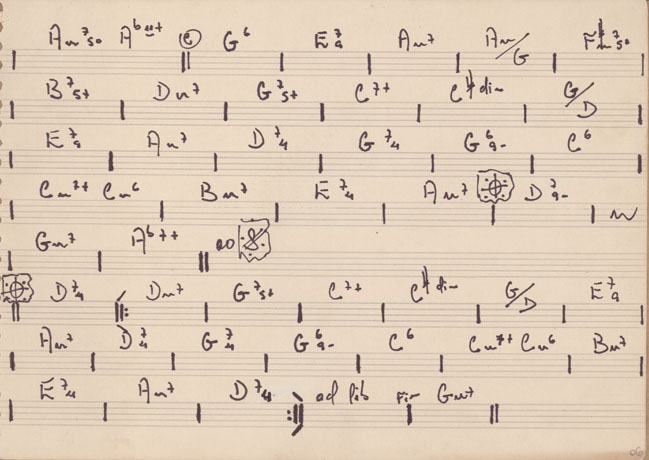 Am7 50 Ab m+ e G6 E 7 9 Am7 Am/G F#m 7 50
B 7 5+ Dm7 G 7 5+ C7+ C# dim G/D
E 7 9 Am7 D 7 4 G 7 4 G 6 9- C6
Cm7+ Cm6 Bm7 E 7 4 Am7 D 7 9-
Gm7 Ab7+ ao
D 7 4 Dm7 G 7 5+ C7+ C# dim G/D E 7 9
Am7 D 7 4 G 7 4 G 6 9- C6 Cm7+ Cm6 Bm7
E 7 4 Am7 D 7 4 ad lib Fim Gm7
06